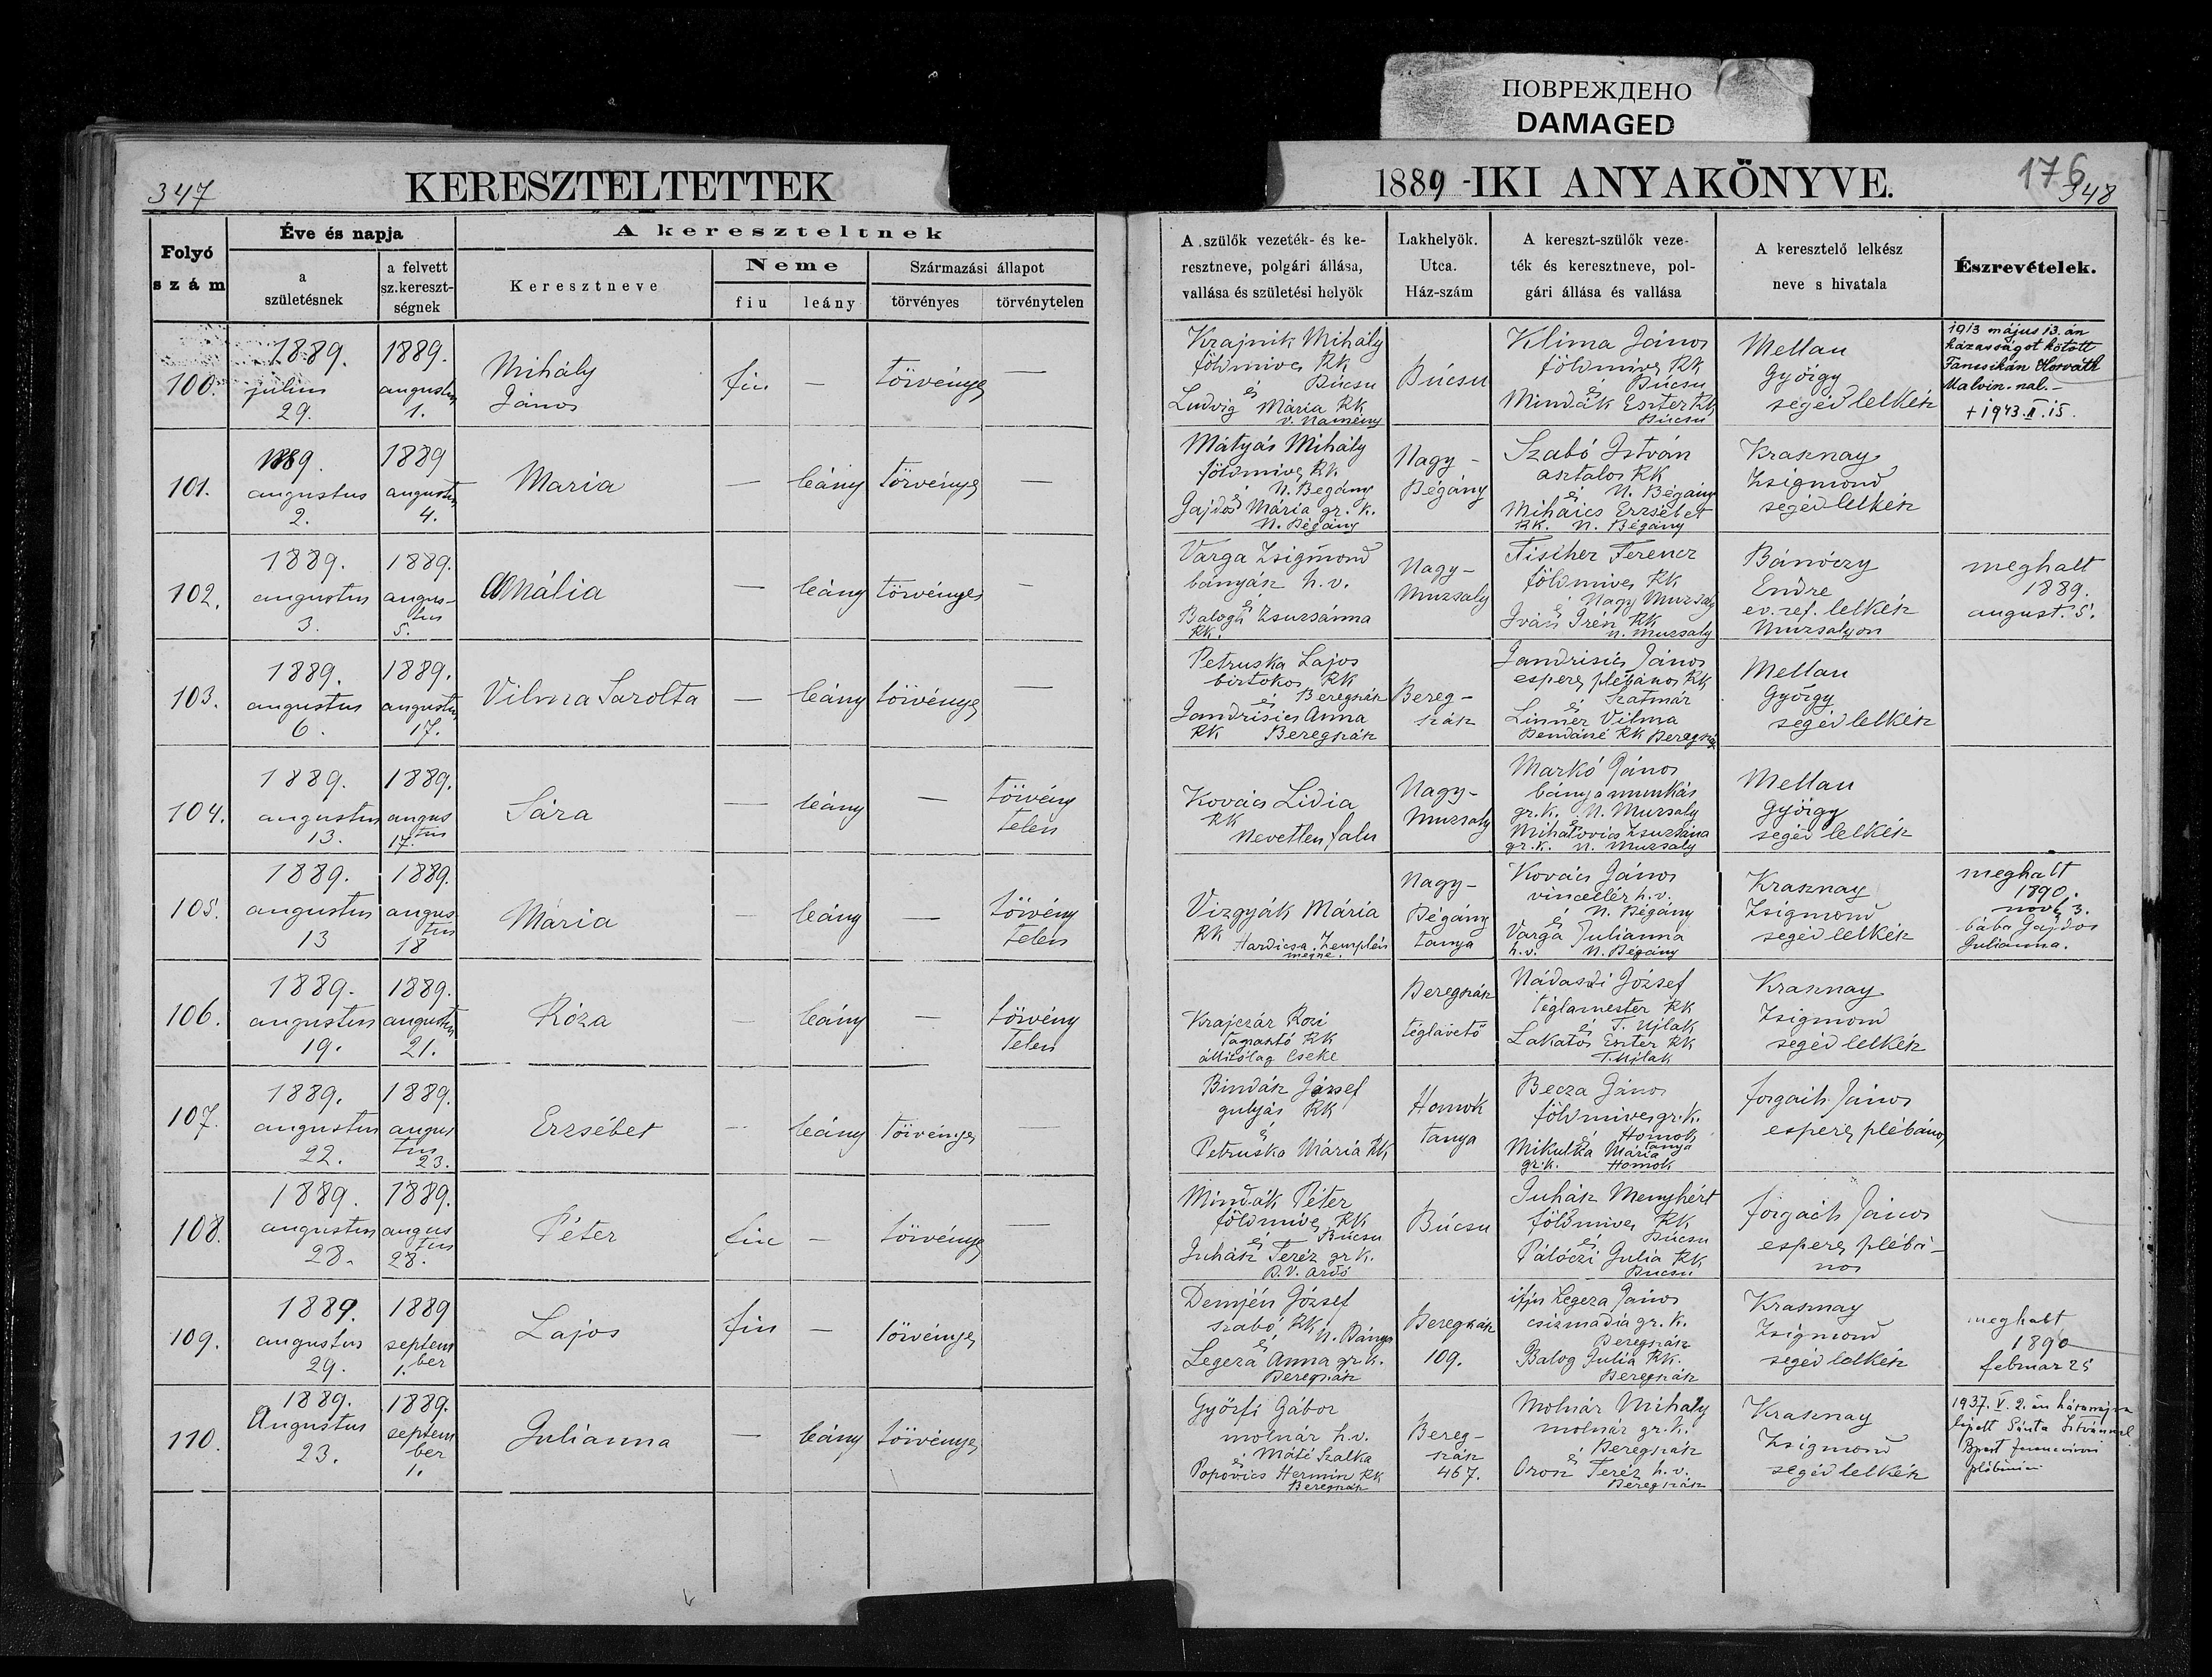 ПОВРЕЖДЕНО
DAMAGED
347
KERESZTELTETTEK
1889-IKI ANYAKÖNYVE.
176
348
Folyó szám
Éve és napja
a születésnek
a felvett sz.kereszt-ségnek
A kereszteltnek
Keresztneve
Neme
fiu
leány
Származási állapot
törvényes
törvénytelen
A szülők vezeték- és ke-
resztneve, polgári állása,
vallása és születési helyök
Lakhelyök.
Utca.
Ház-szám
A kereszt-szülők veze-
ték és keresztneve, pol-
gári állása és vallása
A keresztelő lelkész
neve s hivatala
Észrevételek.
100.
1889.
julius
29.
1889.
augustus
1.
Mihály
János
fiu
—
törvényes
—
Krajnik Mihály
földmives RK
Búcsu
és
Ludvig Mária RK
V. Namény
Búcsu
Klima János
földmives RK
Búcsu
és
Mindák Eszter RK
Búcsu
Mellau
György
segéd lelkész
1913 május 13.án
házasságot kötött
Tancsikán Horváth
Malvin.nal.-
+ 1943.II.15.
101.
1889.
augustus
2.
1889
augustus
4.
Maria
—
leány
törvényes
—
Mátyás Mihály
földmives RK
N. Begány
és
Gajdos Mária gr. k.
N. Bégány
Nagy-
Bégány
Szabó István
asztalos RK
és N. Bégány
Mihaics Erzsébet
RK. N. Bégány
Krasznay
Zsigmond
segéd lelkész
102.
1889.
augustus
3.
1889.
augus-
tus
5.
Amália
—
leány
törvényes
—
Varga Zsigmond
bányász h.v.
és
Balogh Zsuzsánna
RK.
Nagy-
Muzsaly
Fischer Ferencz
földmives RK
és Nagy Muzsaly
Iván Irén RK
N. Muzsaly
Bánóczy
Endre
ev. ref. lelkész
Muzsalyon
meghalt
1889.
august. 5.
103.
1889.
augustus
6.
1889.
augustus
17.
Vilma Sarolta
—
leány
törvényes
—
Petruska Lajos
birtokos RK
és Beregszász
Jandrisics Anna
RK Beregszász
Bereg-
szász
Jandrisics János
esperes plébános RK
és Szatmár
Linner Vilma
RK Beregszász
Mellau
György
segéd lelkész
104.
1889.
augustus
13.
1889.
augus
tus
17.
Sára
—
leány
—
törvény
telen
Kovács Lidia
RK
Nevetlen falu
Nagy-
Muzsaly
Markó János
bánya munkás
gr. k. N. Muzsaly
és
Mihalovics Zsuzsána
gr. k. N. Muzsaly
Mellau
György
segéd lelkész
105.
1889.
augustus
13
1889.
augus
tus
18
Mária
—
leány
—
törvény
telen
Vizgyák Mária
RK Hardicsa. Zemplén
megye.
Nagy-
Bégány
tanya
Kovács János
vincellér h.v.
és N. Bégány
Varga Julianna
h.v. N. Bégány
Krasznay
Zsigmond
segéd lelkész
meghalt
1890.
novb 3.
bába Gajdos
Julianna.
106.
1889.
augustus
19.
1889.
augustus
21.
Róza
—
leány
—
törvény
telen
Krajczár Rozi
tapasztó RK
állitólag Cseke
Beregszász
téglavető
Nádasdi József
téglamester RK
és T. Ujlak
Lakatos Eszter RK
T. Ujlak
Krasznay
Zsigmond
segéd lelkész
107.
1889.
augustus
22.
1889.
augus
tus
23.
Erzsébet
—
leány
törvényes
—
Bindász József
gulyás RK
és
Petruska Mária RK
Homok
tanya
Becza János
földmives gr. k.
és Homok
tanya
Mikulka Mária
gr. k. Homok
Forgách János
esperes plébános
108.
1889.
augustus
28.
1889.
augus
tus
28.
Péter
fiu
—
törvényes
—
Mindák Péter
földmives RK
és Búcsu
Juhász Teréz gr. k.
B.V. Ardó
Búcsu
Juhász Menyhért
földmives RK
és Búcsu
Pálóczi Julia RK
Búcsu
Forgách János
esperes plébá-
nos
109.
1889.
augustus
29.
1889
septem
ber
1.
Lajos
fiu
—
törvényes
Demjén József
szabó RK
és N. Bánya
Legeza Anna gr. k.
Beregszász
Beregszász
109.
ifju Legeza János
csizmadia gr. k.
Beregszász
Balog Julia RK.
Beregszász
Krasznay
Zsigmond
segéd lelkész
meghalt
1890
februar 25
110.
1889.
Augustus
23.
1889.
septem
ber
1.
Julianna
—
leány
törvényes
Győrfi Gábor
molnár h.v.
és Máté Szalka
Popovics Hermin RK
Beregszász
Bereg-
szász
467.
Molnár Mihaly
molnár gr. k.
és Beregszász
Orosz Teréz h.v.
Beregszász
Krasznay
Zsigmond
segéd lelkész
1937. V. 2. án házasságra
lépett Sánta Istvánnal
Bpest Ferencvárosi
plébánia